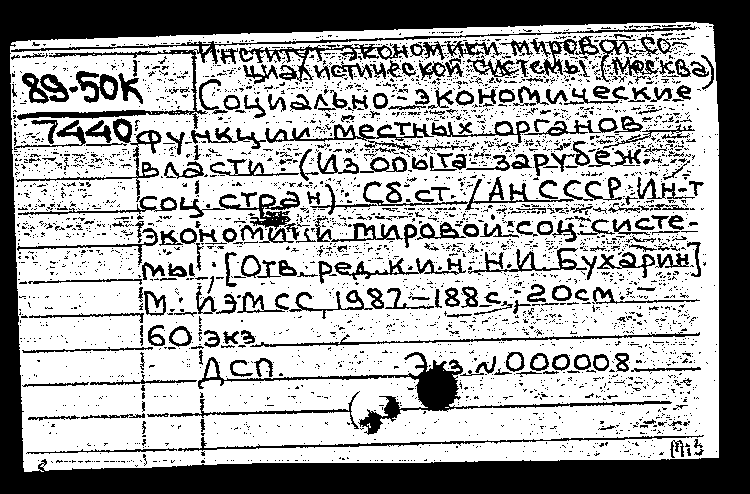 Институт экономики мировой со-
циалистической системы (Москва)
89-50К
7440
Социально-экономические
функции местных органов
власти: (Из опыта зарубеж.
соц. стран): Сб. ст. / АН СССР, Ин-т
экономики мировой соц. систе-
мы; [Отв. ред. к.и.н. Н.И. Бухарин].
М.: ИЭМСС, 1987. - 188 с.; 20 см. -
60 экз.
ДСП. Экз. N 000008.